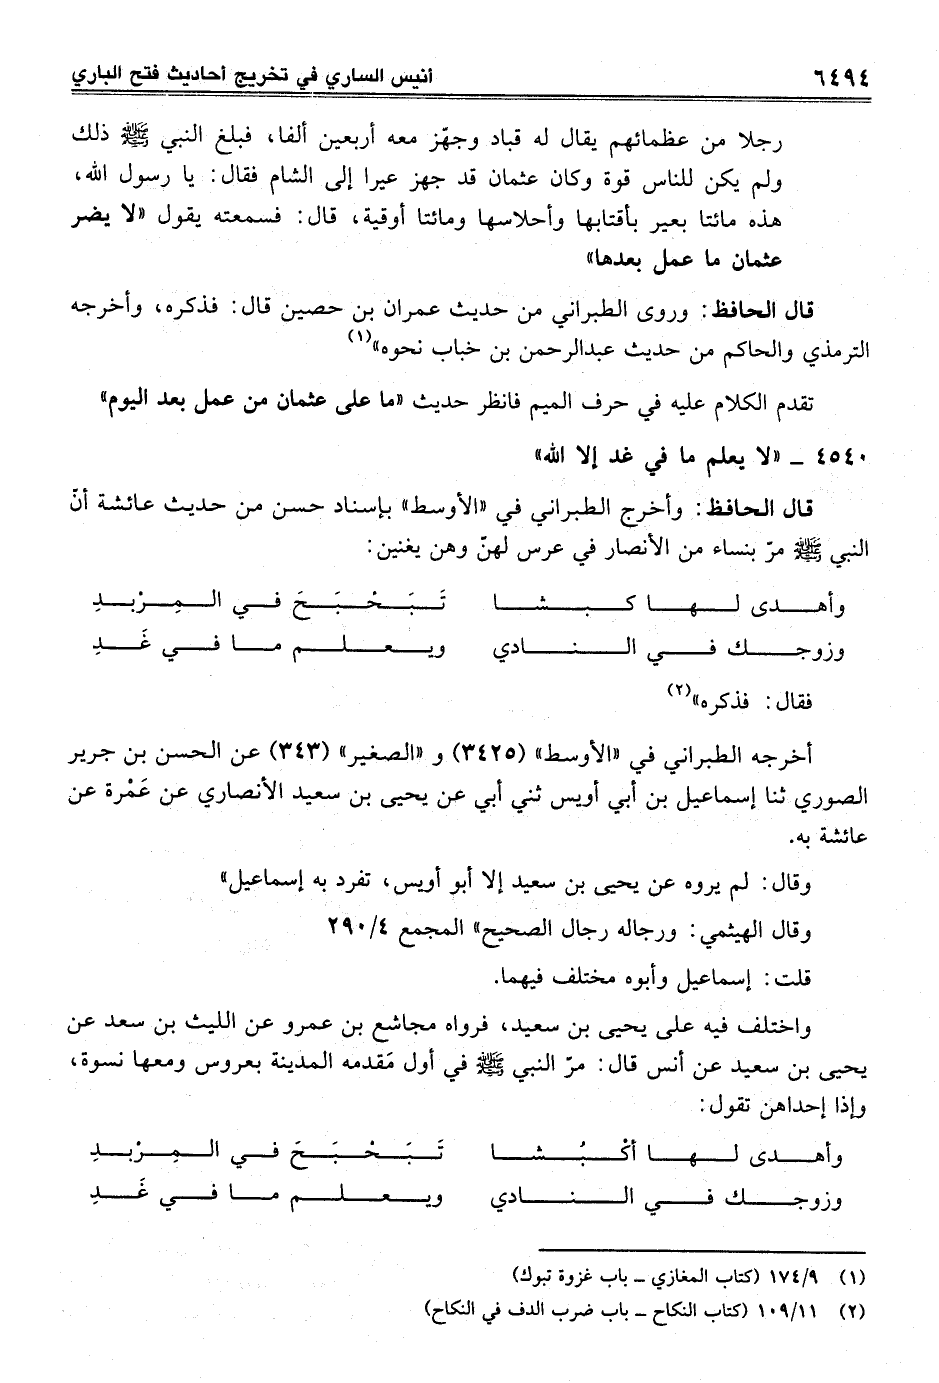 ٦٤٩٤ أنيس الساري في تخريج أحاديث فتح الباري
رجلا من عظمائهم يقال له قباد وجهّز معه أربعين ألفا، فبلغ النبي ﷺ ذلك
ولم يكن للناس قوة وكان عثمان قد جهز عيرا إلى الشام فقال: يا رسول الله،
هذه مائتا بعير بأقتابها وأحلاسها ومائتا أوقية، قال: فسمعته يقول «لا يضر
عثمان ما عمل بعدها»
قال الحافظ: وروى الطبراني من حديث عمران بن حصين قال: فذكره، وأخرجه
الترمذي والحاكم من حديث عبدالرحمن بن خباب نحوه»(١)
تقدم الكلام عليه في حرف الميم فانظر حديث «ما على عثمان من عمل بعد اليوم»
٤٥٤٠ ـ «لا يعلم ما في غد إلا الله»
قال الحافظ: وأخرج الطبراني في «الأوسط» بإسناد حسن من حديث عائشة أنّ
النبي ﷺ مرّ بنساء من الأنصار في عرس لهنّ وهن يغنين:
وأهدى لها كبشا تَبَحْبَحَ في المِرْبدِ
وزوجك في النادي ويعلم ما في غَدِ
فقال: فذكره»(٢)
أخرجه الطبراني في «الأوسط» (٣٤٢٥) و «الصغير» (٣٤٣) عن الحسن بن جرير
الصوري ثنا إسماعيل بن أبي أويس ثني أبي عن يحيى بن سعيد الأنصاري عن عَمْرة عن
عائشة به.
وقال: لم يروه عن يحيى بن سعيد إلا أبو أويس، تفرد به إسماعيل»
وقال الهيثمي: ورجاله رجال الصحيح» المجمع ٢٩٠/٤
قلت: إسماعيل وأبوه مختلف فيهما.
واختلف فيه على يحيى بن سعيد، فرواه مجاشع بن عمرو عن الليث بن سعد عن
يحيى بن سعيد عن أنس قال: مرّ النبي ﷺ في أول مَقدمه المدينة بعروس ومعها نسوة،
وإذا إحداهن تقول:
وأهدى لها أكْبُشا تَبَحْبَحَ في المِرْبدِ
وزوجك في النادي ويعلم ما في غَدِ
(١) ١٧٤/٩ (كتاب المغازي ـ باب غزوة تبوك)
(٢) ١٠٩/١١ (كتاب النكاح ـ باب ضرب الدف في النكاح)